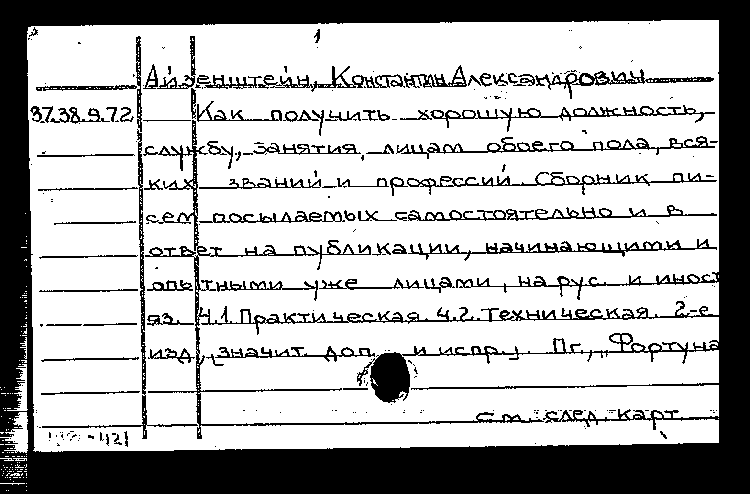 1
Айзенштейн, Константин Александрович
37.38.9.72 Как получить хорошую должность,
службу, занятия, лицам обоего пола, вся-
ких званий и профессий. Сборник пи-
сем посылаемых самостоятельно и в
ответ на публикации, начинающими и
опытными уже лицами, на рус. и иност
яз. Ч.1. Практическая. Ч.2. Техническая. 2-е
изд., значит. доп. и испр. Пг., "Фортуна
См. след. карт.